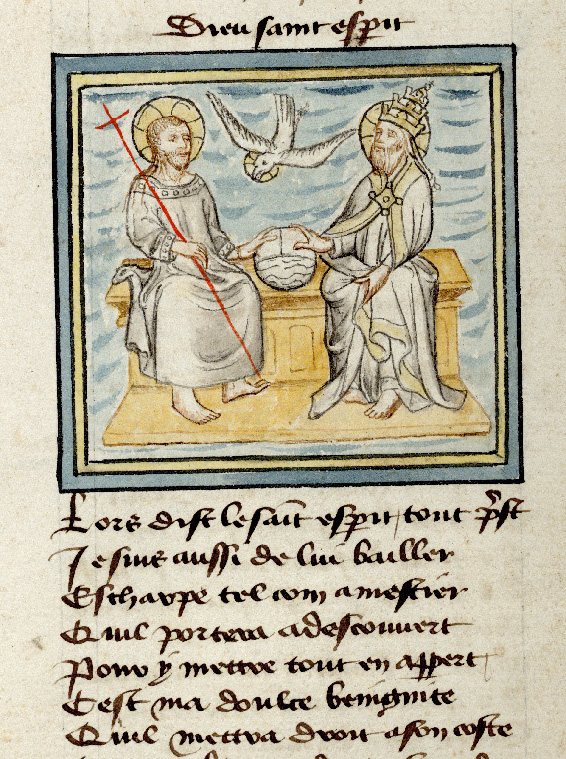 Dieu saint esp̄it
Lors dist le sait̄ esp̄it tout p̄st
Je suis aussi de lui bailler
Escharpe tel com a mestier
Quil portera a descouvert
Pour y mettre tout en appert
Cest ma doulce benignite
Quil mettra droit a son coste